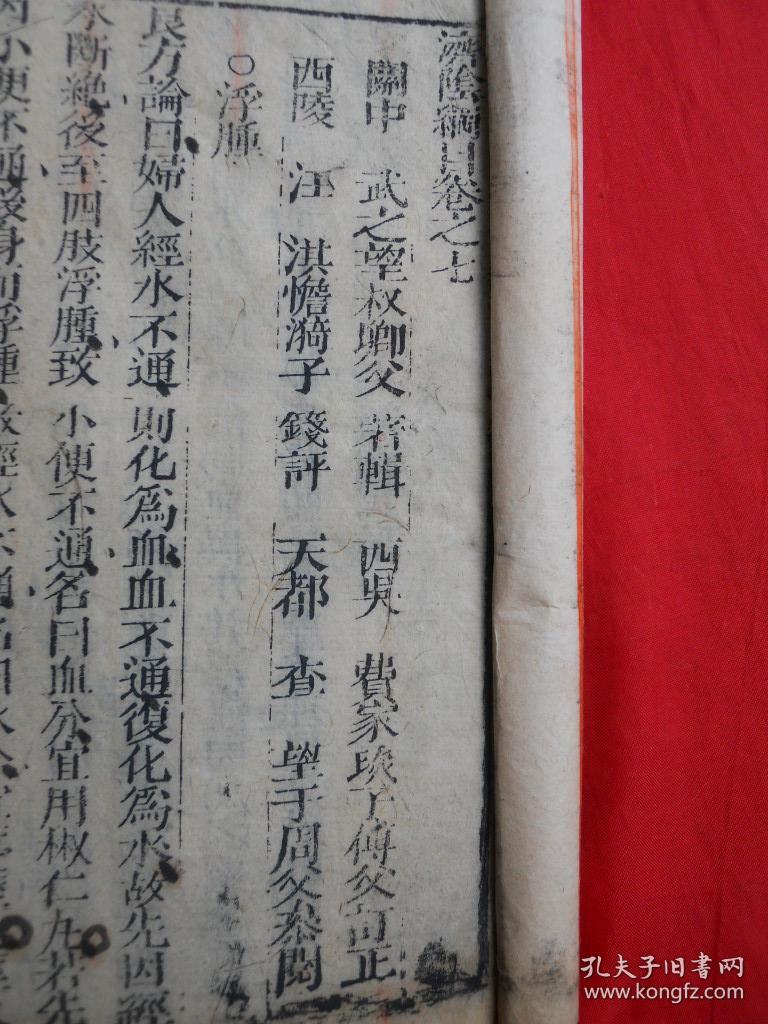 濟陰綱目卷之七
關中　武之望叔卿父　著輯　西吳　費家玙子傅父訂正
西陵　汪　淇憺漪子　箋評　天都　查　望于周父參閱
○浮腫
良方論曰婦人經水不通則化爲血血不通復化爲水故先因經
水斷絶後至四肢浮腫致小便不通名曰血分宜用椒仁丸若先
因小便不通後身面浮腫致經水不通名曰水分
孔夫子旧書网
www.kongfz.com